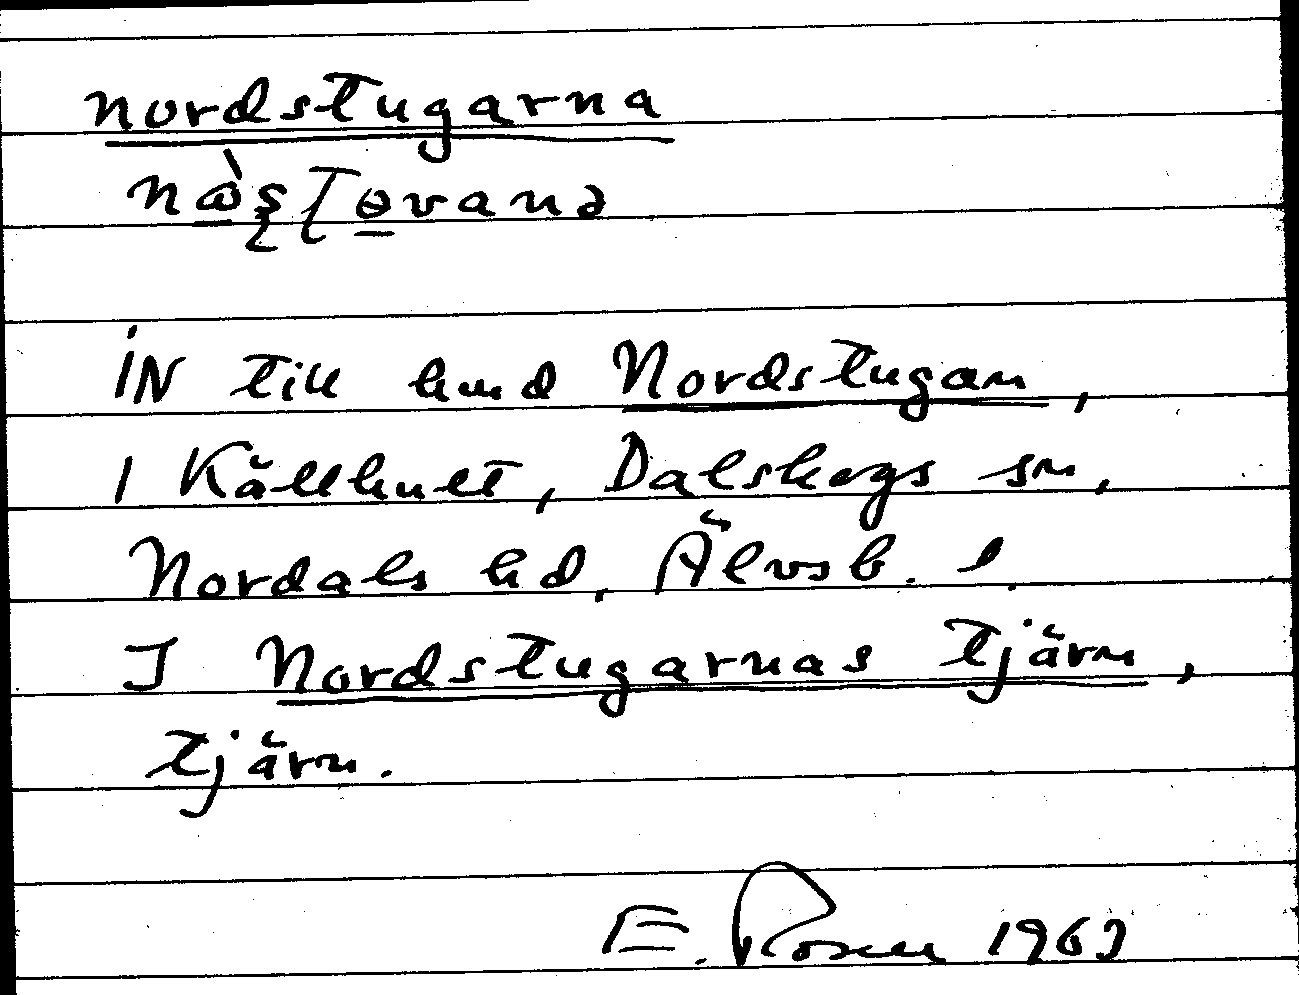 nordstugarna
IN till hmd Nordstugan,
I Källhult, Dalskogs sn,
Nordals hd, Älvsb. l.
I Nordstugarnas tjärn,
tjärn.
E. Rosen 1963